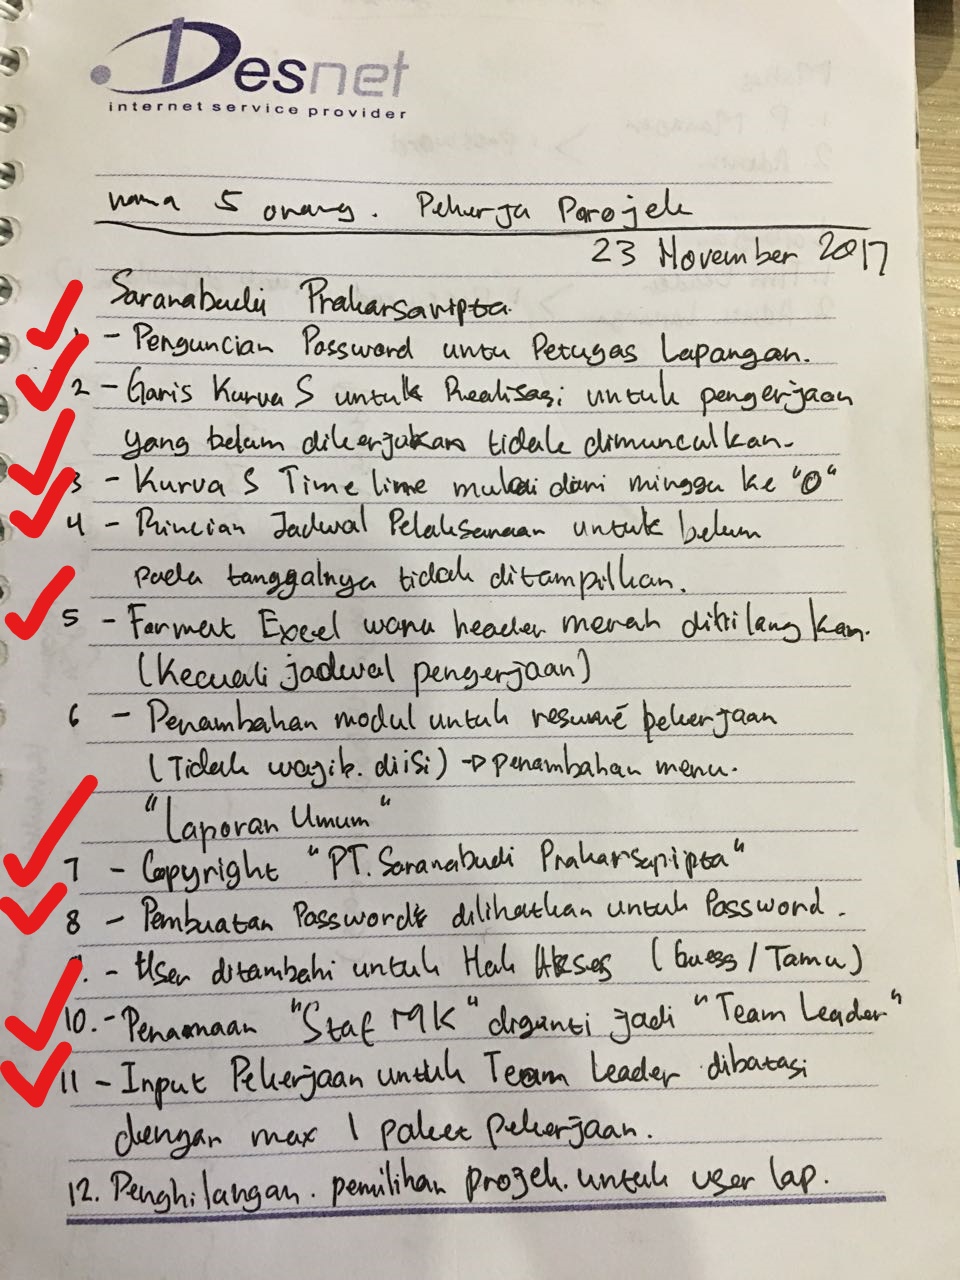 Desnet
internet service provider
nama 5 orang. Pekerja Porojek
23 November 2017
Saranabudi Prakarsaripta.
1 - Penguncian Password untu Petugas Lapangan.
2 - Garis Kurva S untuk Realisasi untuk pengerjaan
yang belum dikerjakan tidak dimunculkan.
3 - Kurva S Time line mulai dari minggu ke "0"
4 - Rincian Jadwal Pelaksanaan untuk belum
pada tanggalnya tidak ditampilkan.
5 - Format Excel warna header merah dihilangkan.
(Kecuali jadwal pengerjaan)
6 - Penambahan modul untuk resumé pekerjaan
(Tidak wajib diisi) → penambahan menu.
"Laporan Umum"
7 - Copyright "PT. Saranabudi Prakarsaripta"
8 - Pembuatan Password dilihatkan untuk Password.
9. - User ditambahi untuk Hak Akses (Guess / Tamu)
10. - Penamaan "Staf MK" diganti jadi "Team Leader"
11 - Input Pekerjaan untuk Team Leader dibatasi
dengan max 1 paket pekerjaan.
12. Penghilangan. pemilihan projek. untuk user lap.